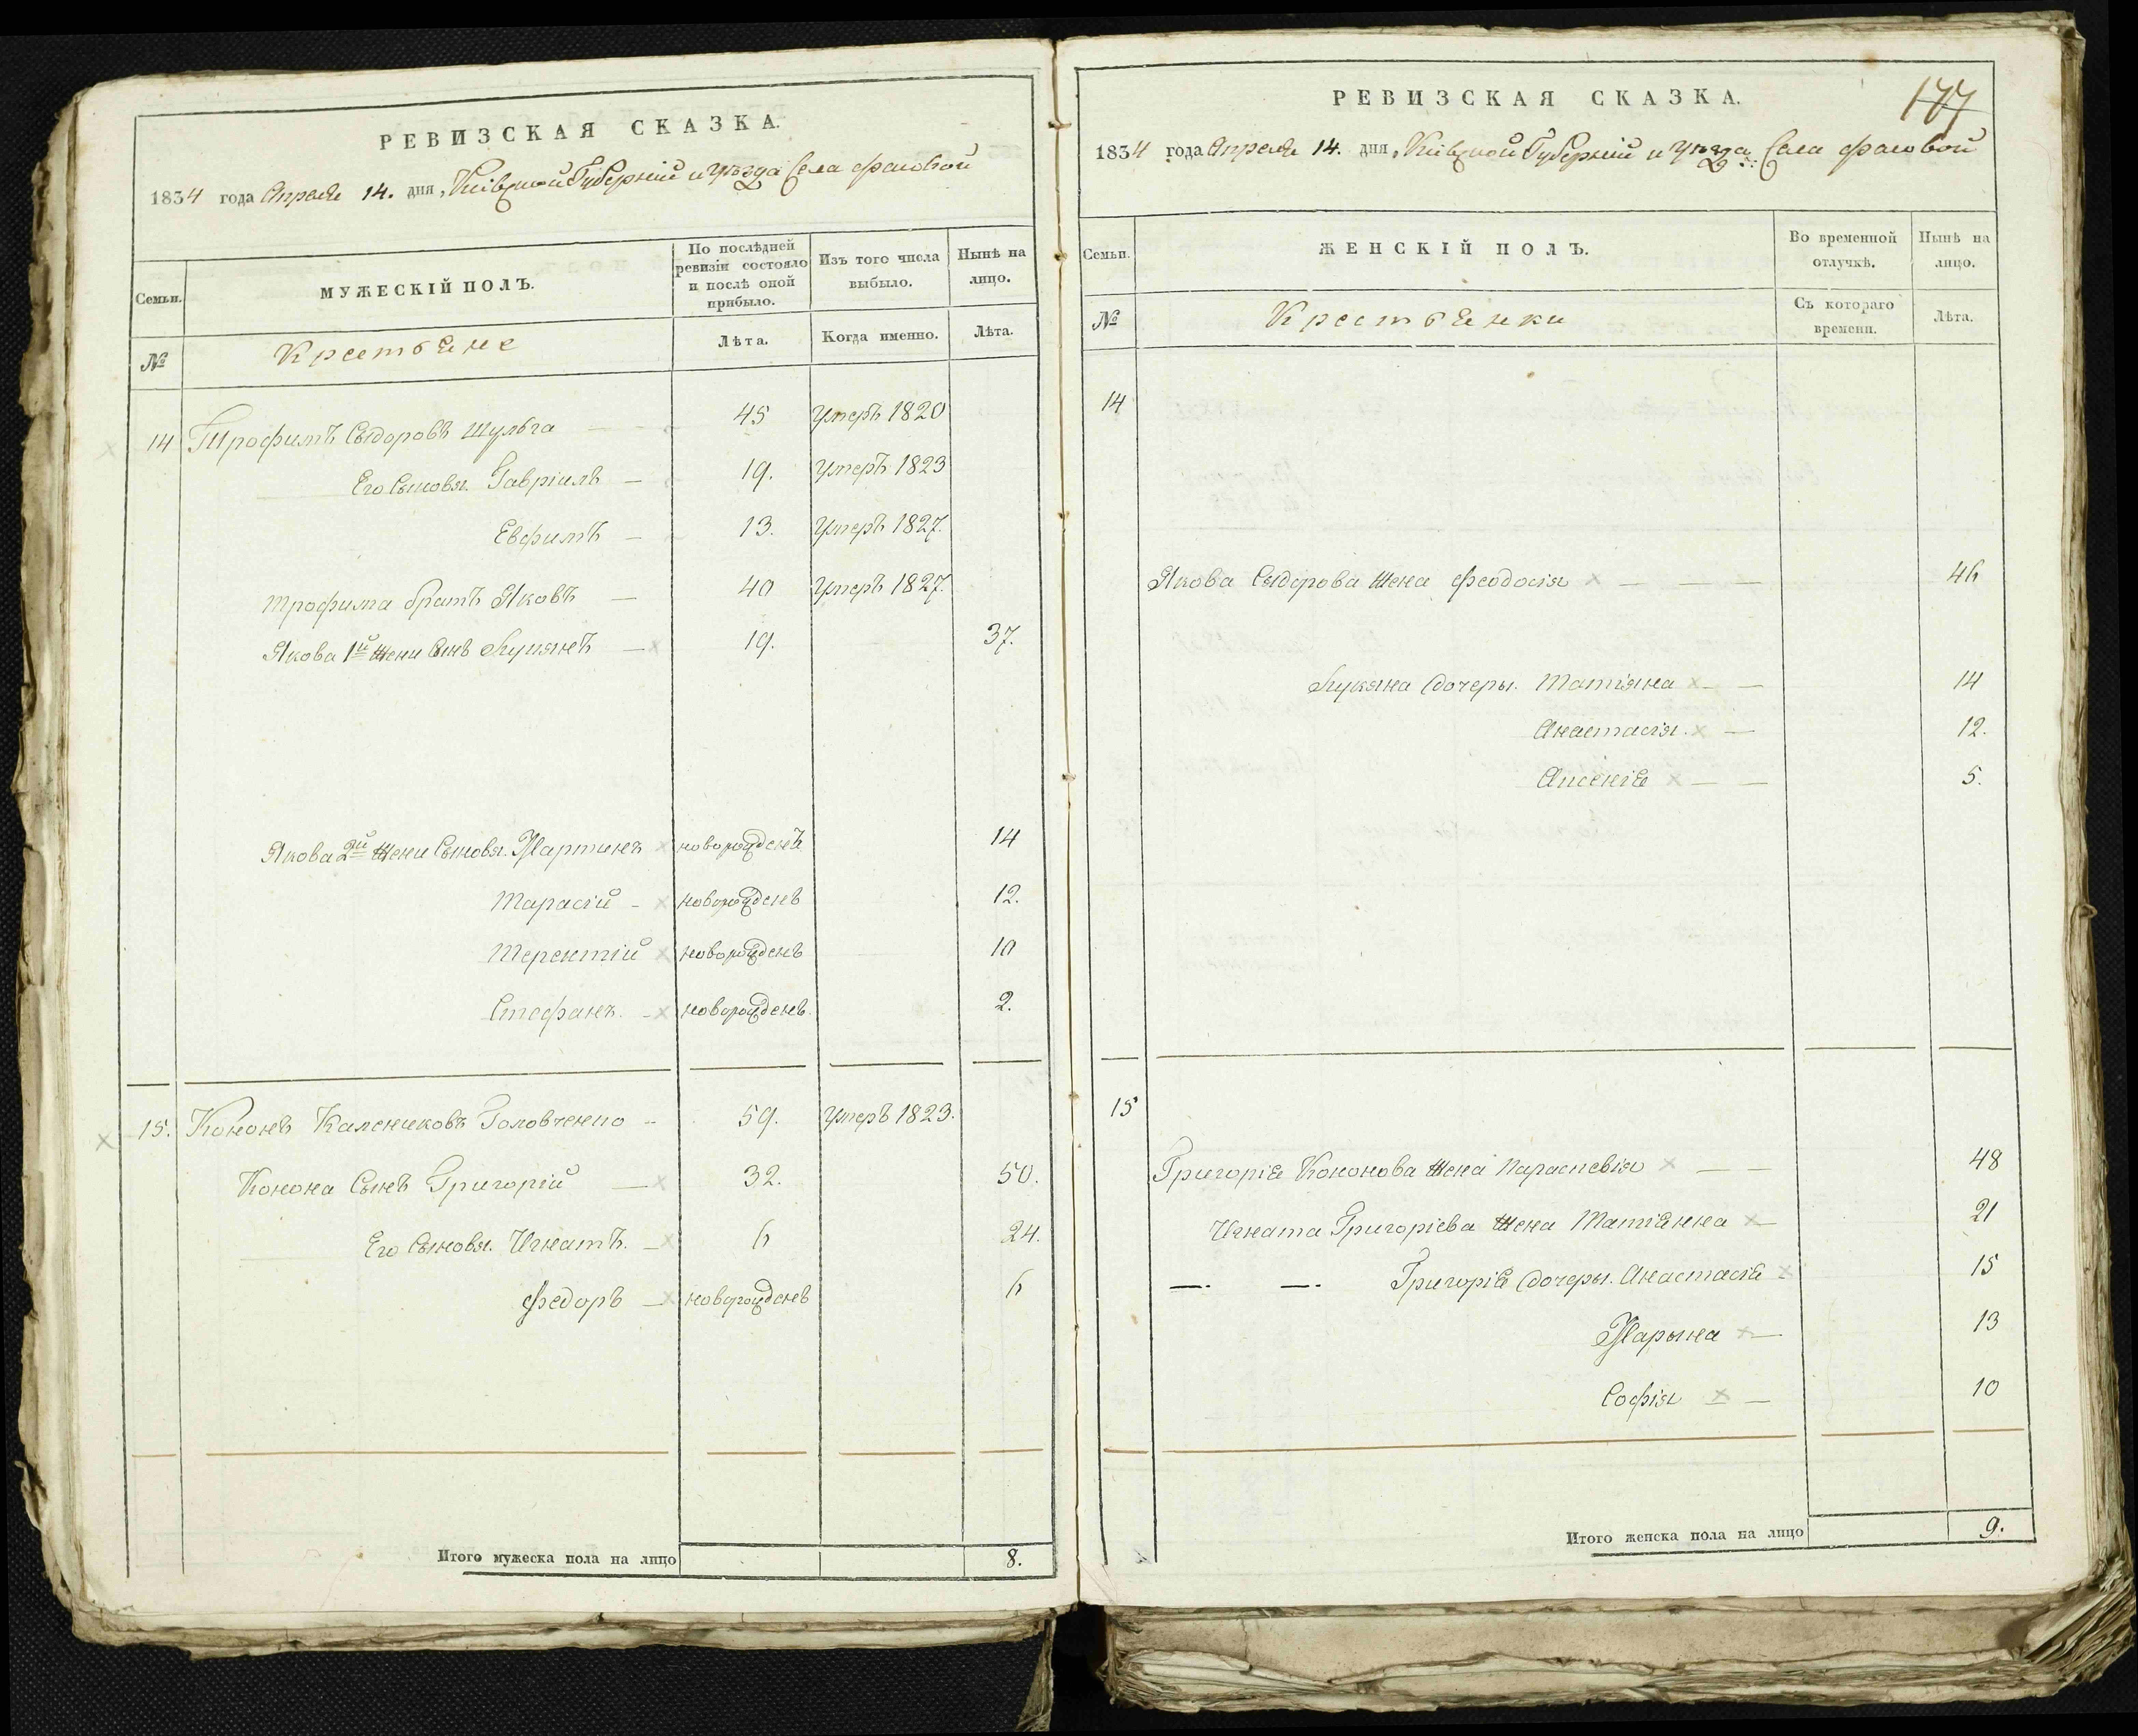 РЕВИЗСКАЯ СКАЗКА.
1834 года Апреля 14. дня, Кіевской Губерніи и Уѣзда Села Фасовой
Семьи.
МУЖЕСКІЙ ПОЛЪ.
По послѣдней ревизіи состояло и послѣ оной прибыло.
Изъ того числа выбыло.
Нынѣ на лицо.
№
Крестьяне
Лѣта.
Когда именно.
Лѣта.
14 Трофимъ Сыдоровъ Шульга 45 умеръ 1820
Его Сыновя. Гавріилъ 19. умеръ 1823
Евфимъ 13. умеръ 1827.
Трофима братъ Яковъ 40 умеръ 1827.
Якова 1й жени Сынъ Лукянъ 19. 37.
Якова 2й жени Сыновя. Мартинъ новорожденъ 14
Тарасій новорожденъ 12.
Терентій новорожденъ 10
Стефанъ. новорожденъ. 2.
15. Кононъ Калениковъ Головченко 59. умеръ 1823.
Конона Сынъ Григорій 32. 50.
Его Сыновя. Игнатъ. 6 24.
Федоръ новорожденъ 6
Итого мужеска пола на лицо 8.
177
РЕВИЗСКАЯ СКАЗКА.
1834 года Апреля 14. дня, Кіевской Губерніи и Уѣзда Села Фасовой
Семьи.
ЖЕНСКІЙ ПОЛЪ.
Во временной отлучкѣ.
Нынѣ на лицо.
№
Крестьянки
Съ котораго времени.
Лѣта.
14
Якова Сыдорова жена Феодосія 46
Лукяна дочеры. Татіяна 14
Анастасія. 12.
Аксенія 5.
15
Григорія Кононова жена Параскевія 48
Игната Григоріева жена Татіянна 21
Григорія дочеры. Анастасія 15
Марына 13
Софія 10
Итого женска пола на лицо 9.